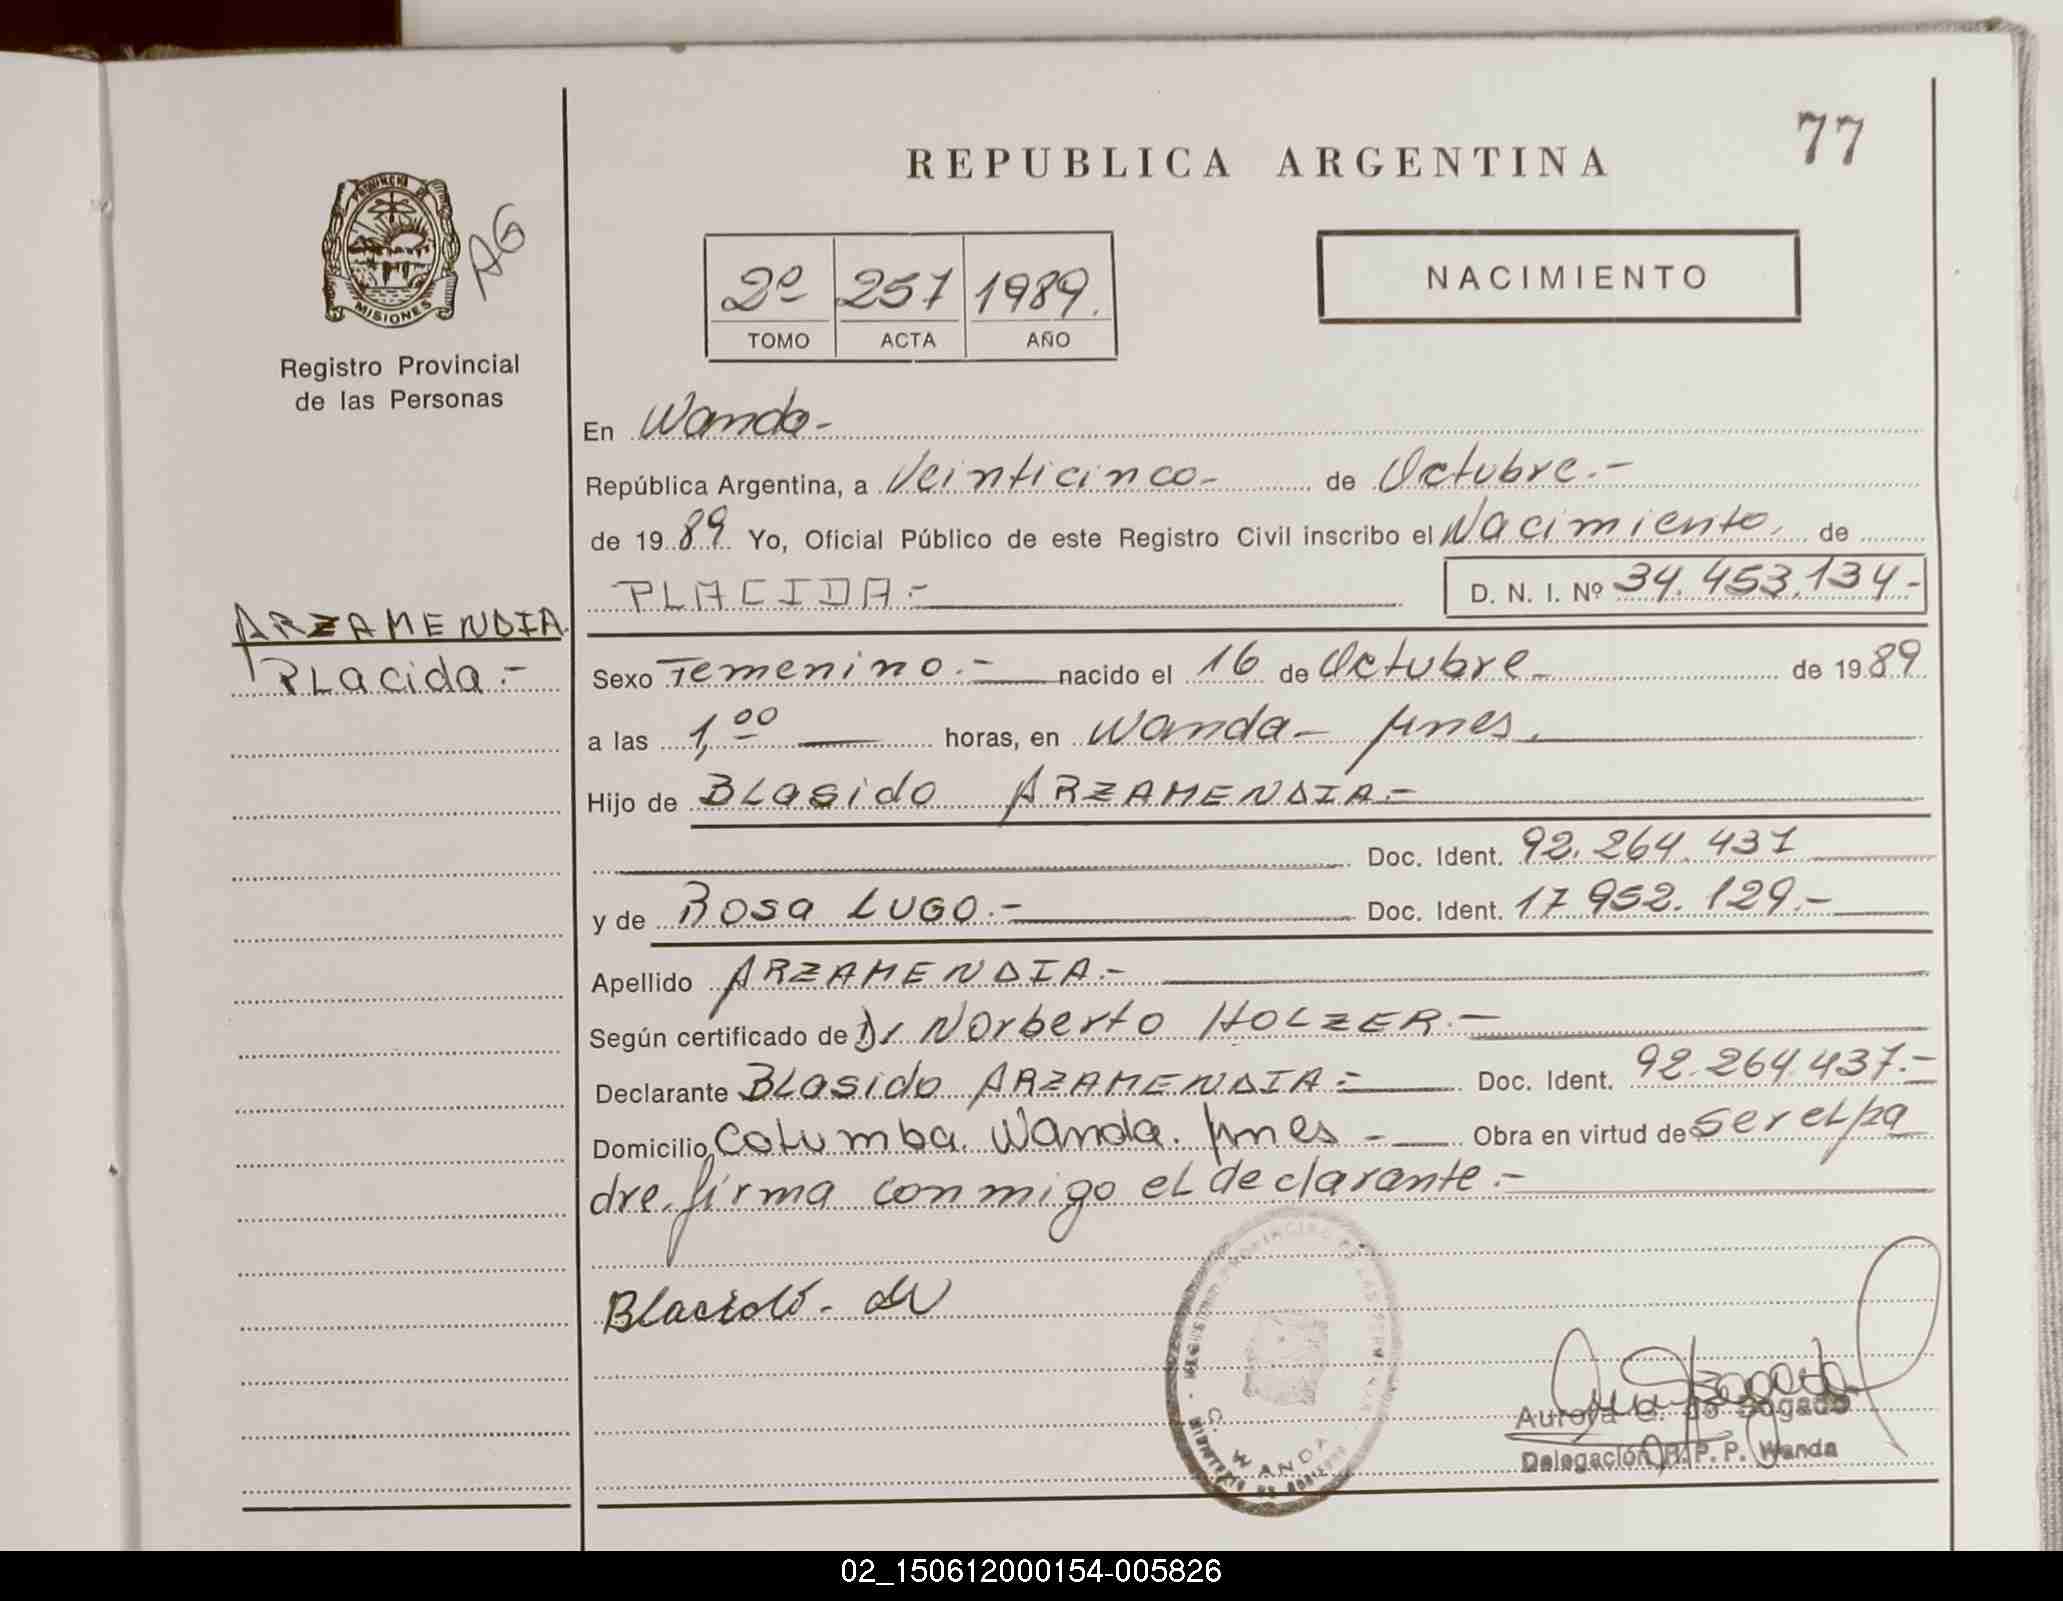 77
REPUBLICA ARGENTINA
PROVINCIA DE
MISIONES
AG
Registro Provincial
de las Personas
2º 257 1989.
TOMO ACTA AÑO
NACIMIENTO
En Wanda-
República Argentina, a Veinticinco- de Octubre.-
de 1989 Yo, Oficial Público de este Registro Civil inscribo el Nacimiento de
PLACIDA.- D. N. I. Nº 34.453.134-
ARZAMENDIA
PLacida.-
Sexo Femenino.- nacido el 16 de Octubre- de 1989
a las 1,00 horas, en Wanda- Mnes.
Hijo de BLasido ARZAMENDIA.-
Doc. Ident. 92.264.437
y de Rosa LUGO.- Doc. Ident. 17 952.129.-
Apellido ARZAMENDIA.-
Según certificado de Dr Norberto HOLZER.-
Declarante BLasido ARZAMENDIA.- Doc. Ident. 92.264.437.-
Domicilio Columba. Wanda. Mnes - Obra en virtud de ser eL pa
dre. firma conmigo eL declarante.-
C. WANDA
Aurora G. de Sagado
Delegación R. P. P. Wanda
02_150612000154-005826